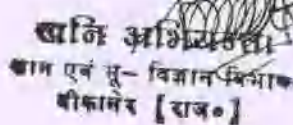 खनि अभियन्ता
खान एवं भू- विज्ञान विभाग
बीकानेर [राज०]